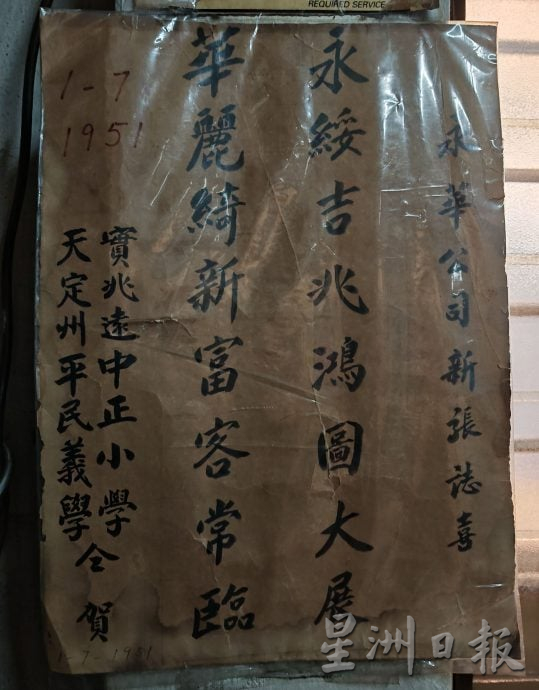 REQUIRED SERVICE
永華公司新張誌喜
永綏吉兆鴻圖大展
華麗綺新富客常臨
實兆遠中正小學
天定州平民義學仝賀
1-7
1951
1-7-1951
星洲日報